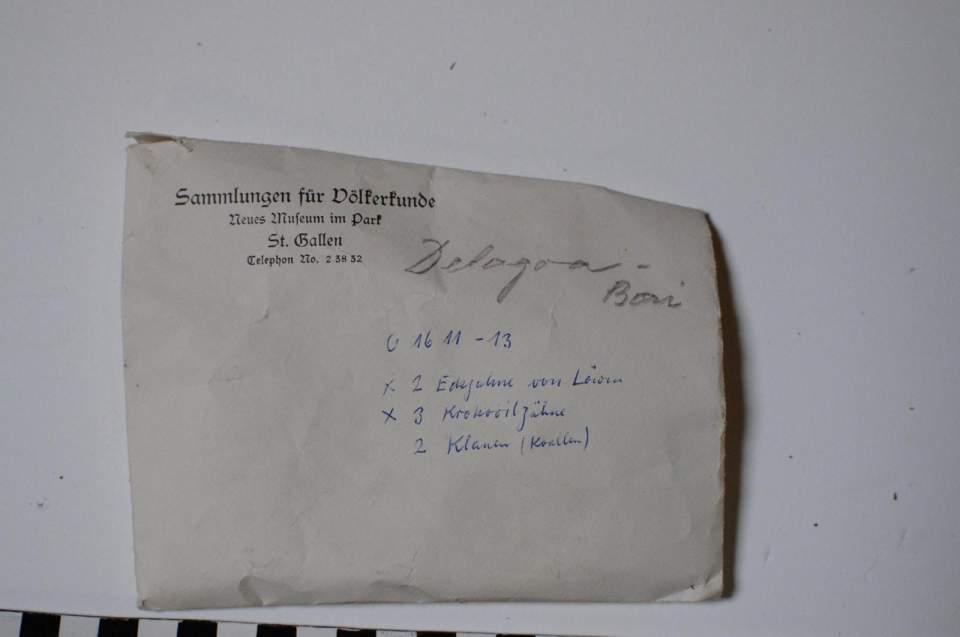 Sammlungen für Völkerkunde
Neues Museum im Park
St. Gallen
Telephon No. 2 38 32
Delagoa -
C 16 11 - 13
x 2 Eckzähne von Löwen
x 3 Krokodilzähne
2 Klauen (Krallen)